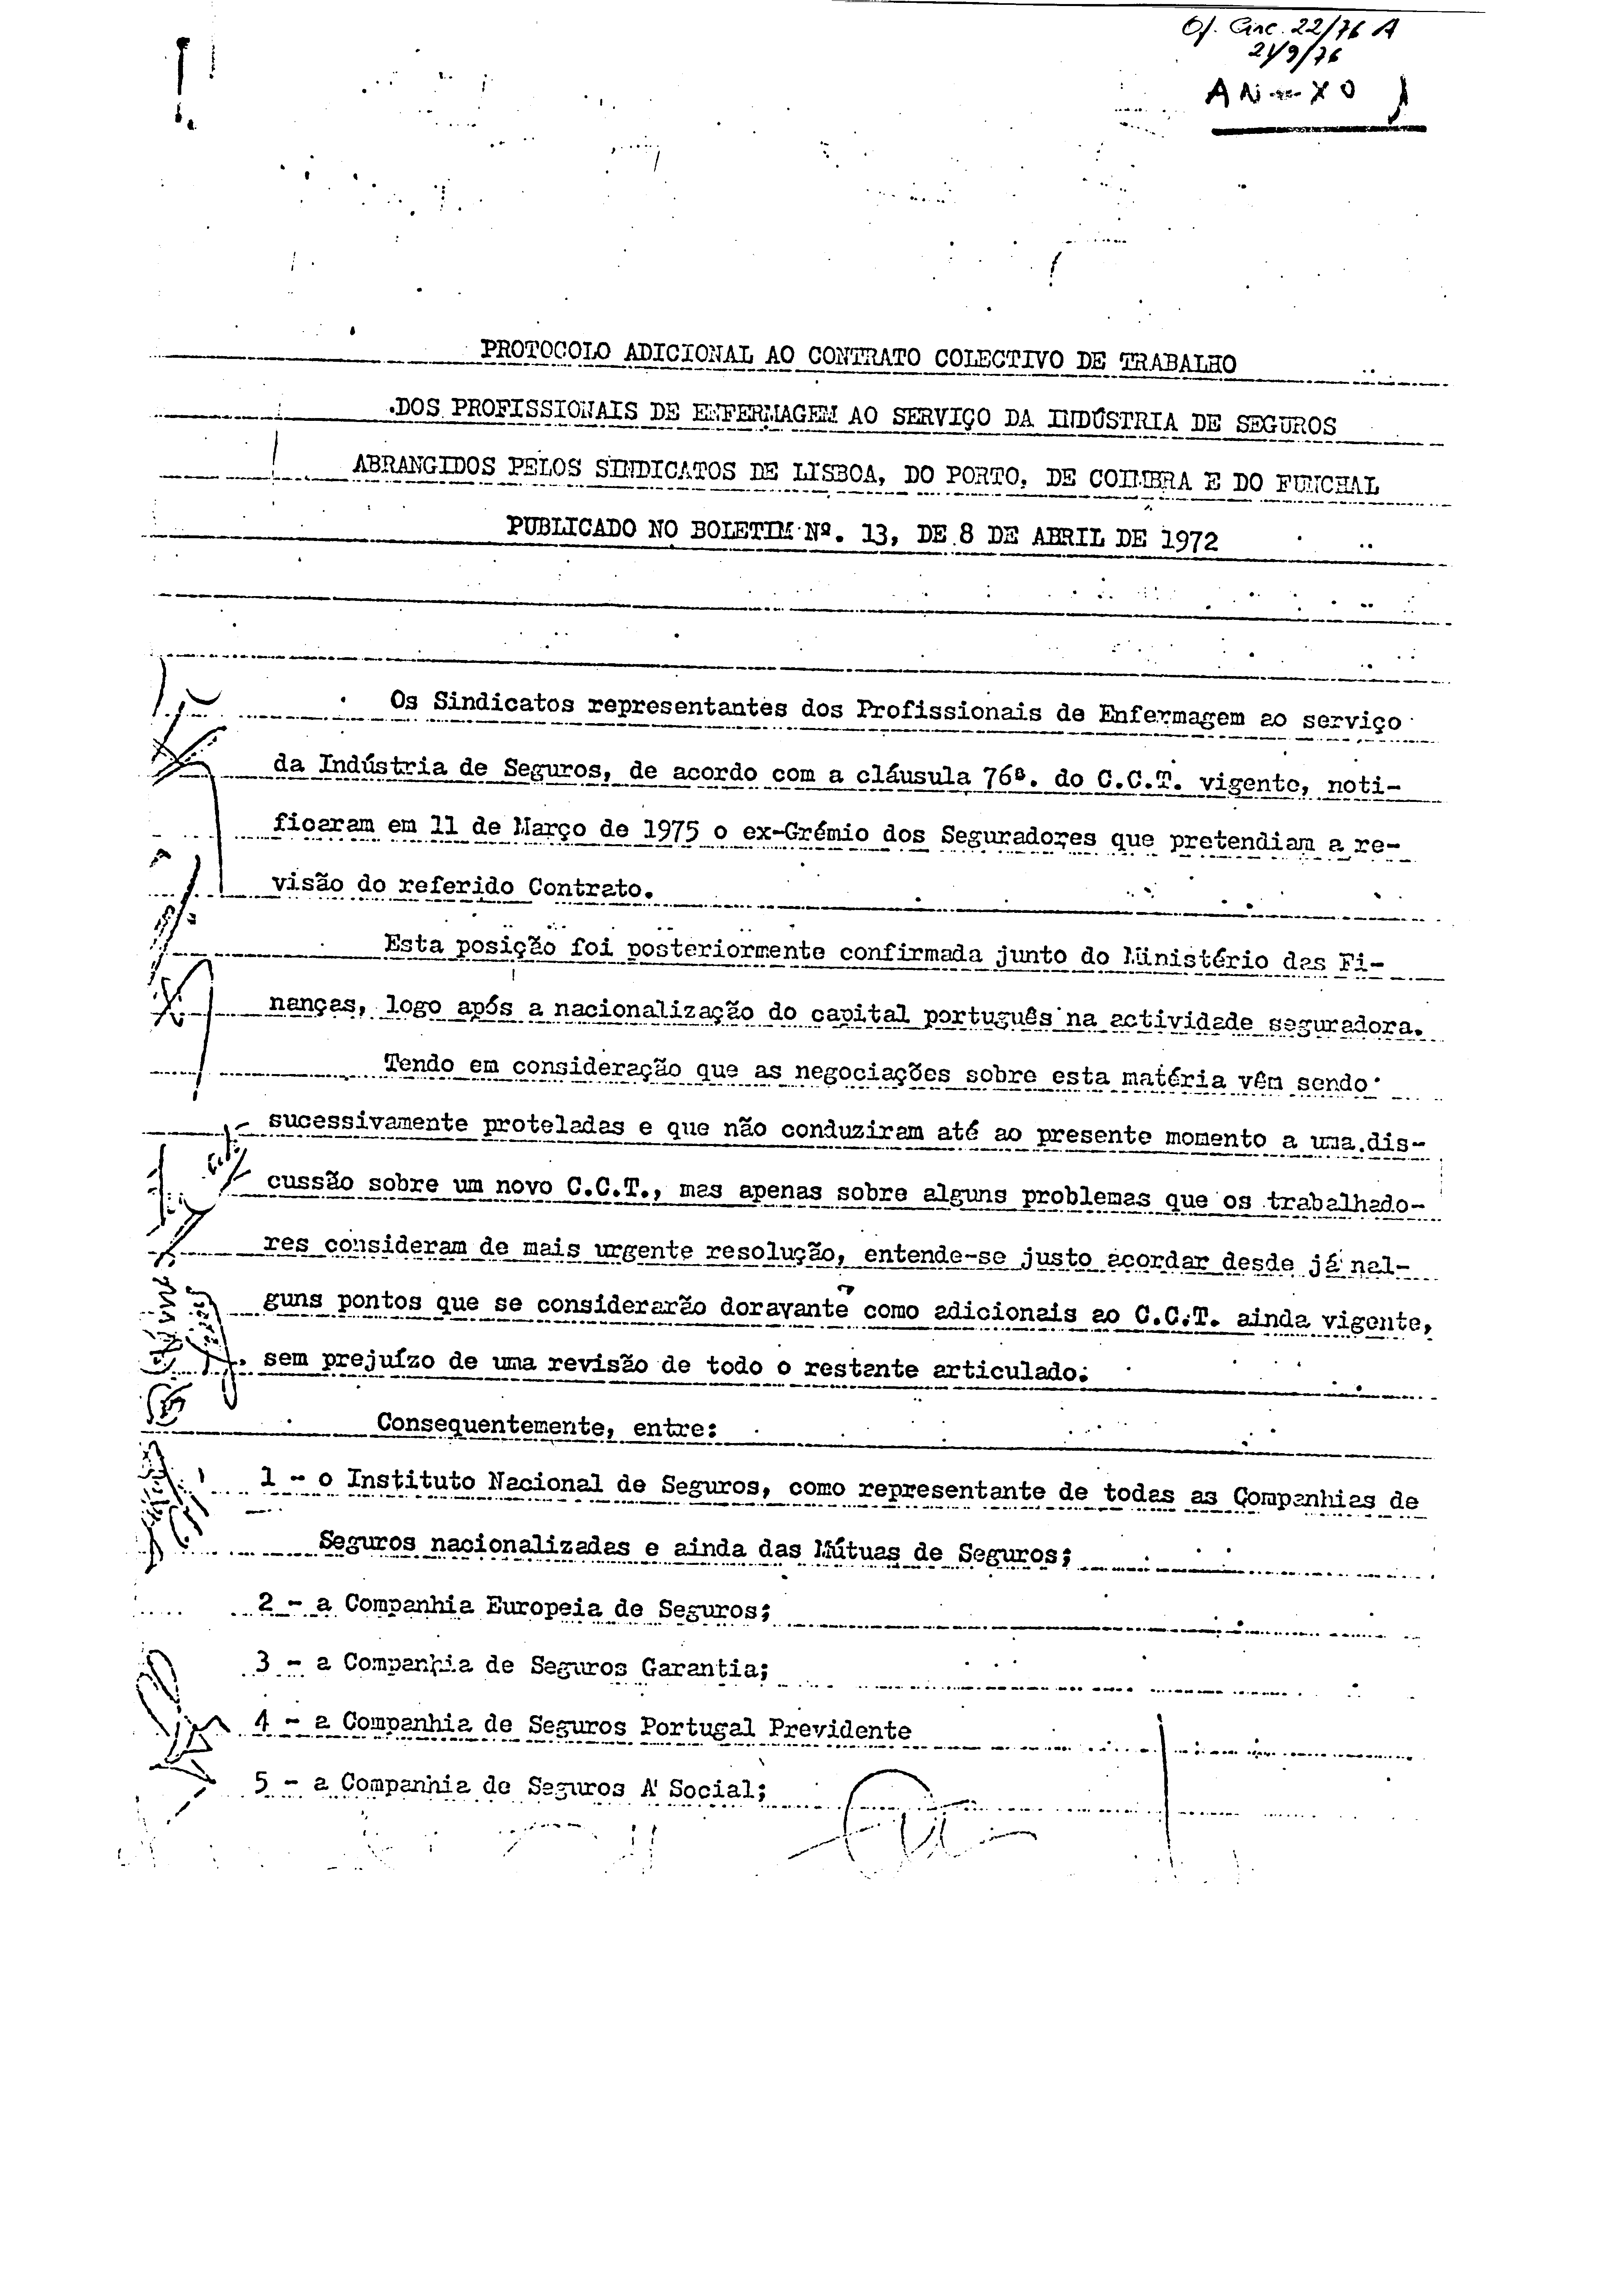 Of. Circ. 22/76 A
21/9/76
PROTOCOLO ADICIONAL AO CONTRATO COLECTIVO DE TRABALHO
DOS PROFISSIONAIS DE ENFERMAGEM AO SERVIÇO DA INDÚSTRIA DE SEGUROS
ABRANGIDOS PELOS SINDICATOS DE LISBOA, DO PORTO, DE COIMBRA E DO FUNCHAL
PUBLICADO NO BOLETIM Nº. 13, DE 8 DE ABRIL DE 1972
Os Sindicatos representantes dos Profissionais de Enfermagem ao serviço
da Indústria de Seguros, de acordo com a cláusula 76ª. do C.C.T. vigente, noti-
ficaram em 11 de Março de 1975 o ex-Grémio dos Seguradores que pretendiam a re-
visão do referido Contrato.
Esta posição foi posteriormente confirmada junto do Ministério das Fi-
nanças, logo após a nacionalização do capital português na actividade seguradora.
Tendo em consideração que as negociações sobre esta matéria vêm sendo
sucessivamente proteladas e que não conduziram até ao presente momento a uma dis-
cussão sobre um novo C.C.T., mas apenas sobre alguns problemas que os trabalhado-
res consideram de mais urgente resolução, entende-se justo acordar desde já nal-
guns pontos que se considerarão doravante como adicionais ao C.C.T. ainda vigente,
sem prejuízo de uma revisão de todo o restante articulado.
Consequentemente, entre:
1 - o Instituto Nacional de Seguros, como representante de todas as Companhias de
Seguros nacionalizadas e ainda das Mútuas de Seguros;
2 - a Companhia Europeia de Seguros;
3 - a Companhia de Seguros Garantia;
4 - a Companhia de Seguros Portugal Previdente
5 - a Companhia de Seguros A Social;